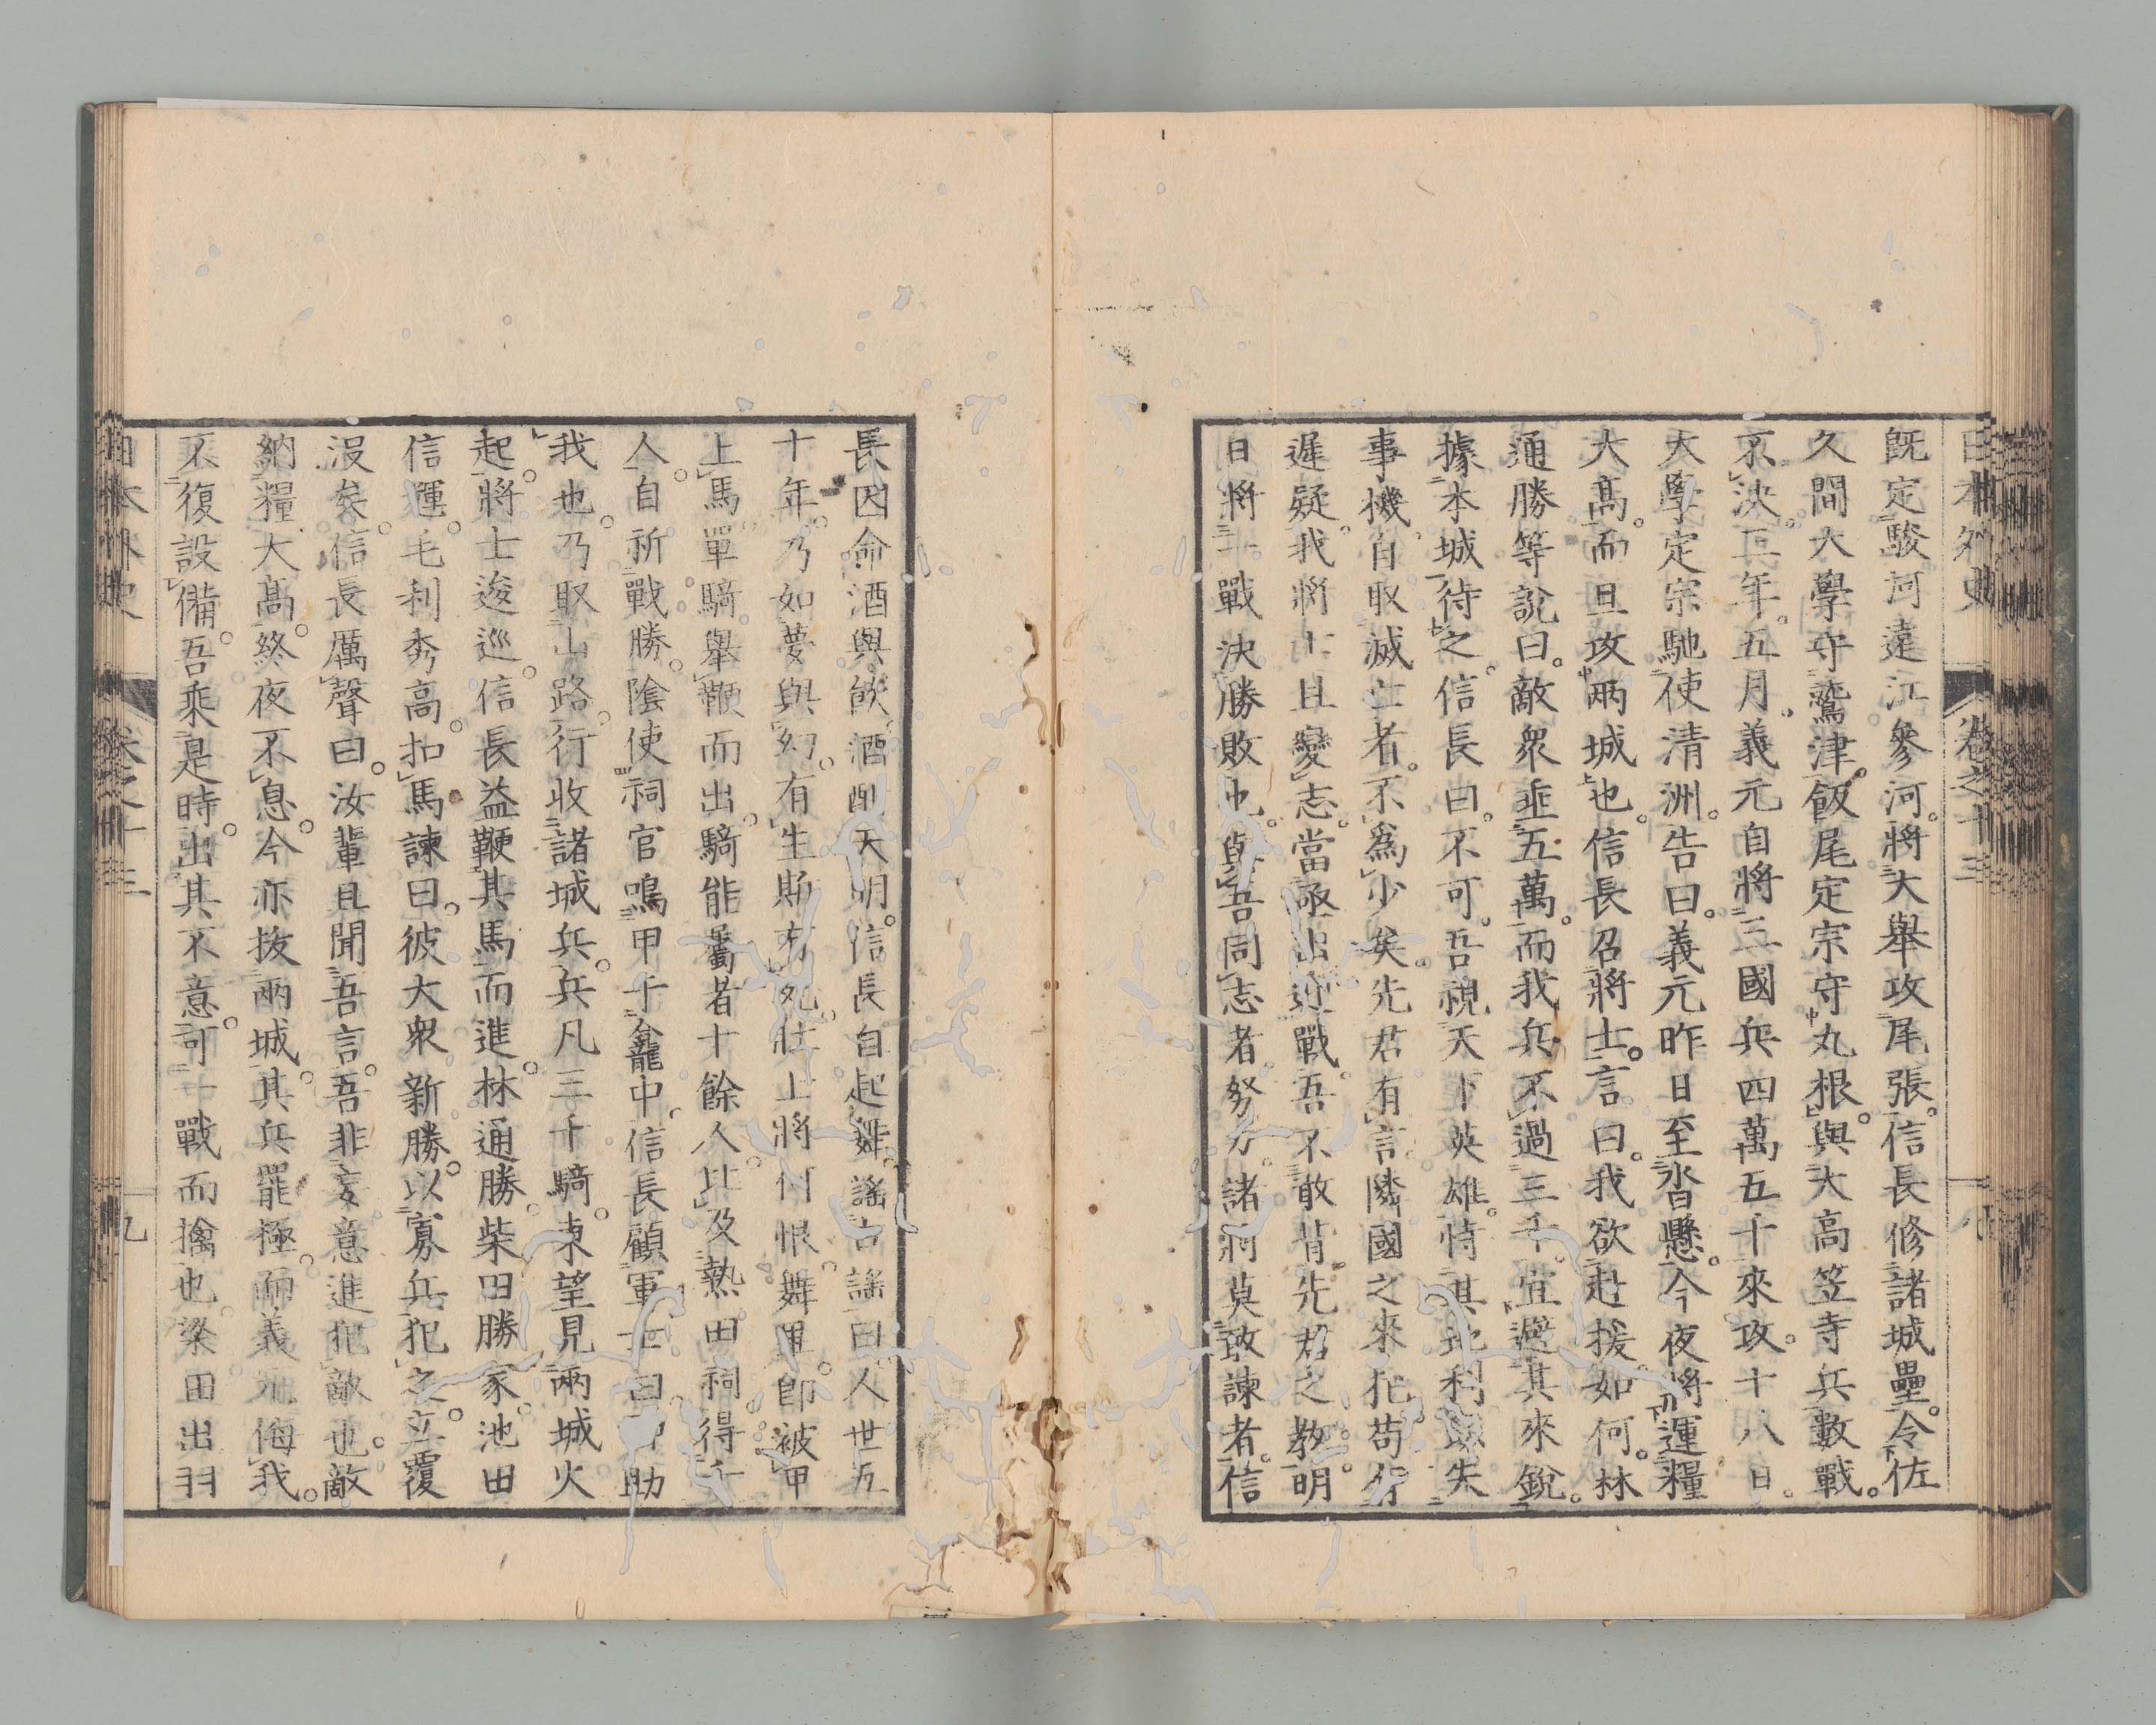 日本外史 卷之十三 八
既定駿河遠江參河將大舉攻尾張信長修諸城壘令佐
久間大學守鷲津飯尾定宗守丸根與大高笠寺兵數戰
不決三年五月義元自將三國兵四萬五千來攻十八日
大學定宗馳使清洲告曰義元昨日至沓懸今夜將運糧
大高而旦攻兩城也信長召將士言曰我欲赴援如何林
通勝等說曰敵衆垂五萬而我兵不過三千宜避其來銳
據本城待之信長曰不可吾視天下英雄恃其地利以失
事機自取滅亡者不爲少矣先君有言隣國之來犯苟有
遲疑我將士且變志當亟出迎戰吾不敢背先君之教明
日將一戰決勝敗也與吾同志者努力諸將莫敢諫者信
長因命酒與飲酒酣天明信長自起舞謠古謠曰人世五
十年乃如夢與幻有生斯有死壯士將何恨舞畢卽被甲
上馬單騎舉鞭而出騎能屬者十餘人比及熱田祠得千
人自祈戰勝陰使祠官鳴甲于龕中信長顧軍士曰神助
我也乃取山路行收諸城兵兵凡三千騎東望見兩城火
起將士逡巡信長益鞭其馬而進林通勝柴田勝家池田
信輝毛利秀高扣馬諫曰彼大衆新勝以寡兵犯之立覆
沒矣信長厲聲曰汝輩且聞吾言吾非妄意進犯敵也敵
納糧大高終夜不息今亦拔兩城其兵罷極而義元侮我
不復設備吾乘是時出其不意可一戰而擒也梁田出羽
日本外史 卷之十三 九